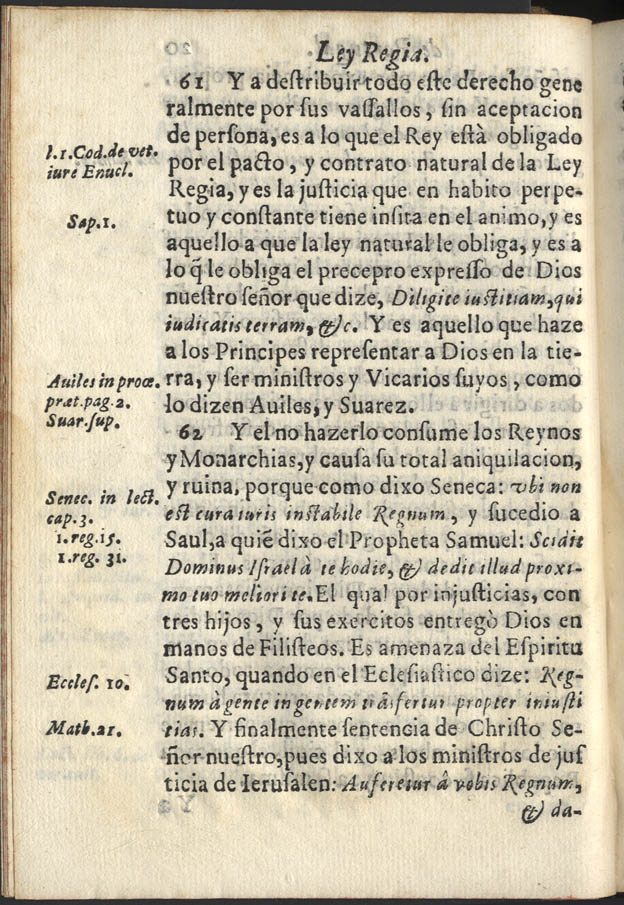 Ley Regia.
61 Y a destribuir todo este derecho gene
ralmente por sus vassallos, sin aceptacion
de persona, es a lo que el Rey està obligado
l.1.Cod.de vet.
iure Enucl.
por el pacto, y contrato natural de la Ley
Regia, y es la justicia que en habito perpe-
Sap.1.
tuo y constante tiene insita en el animo, y es
aquello a que la ley natural le obliga, y es a
lo q̃ le obliga el precepro expresso de Dios
nuestro señor que dize, Diligite iustitiam, qui
iudicatis terram, &c. Y es aquello que haze
a los Principes representar a Dios en la tie-
Auiles in proœ.
præt.pag.2.
Suar.sup.
rra, y ser ministros y Vicarios suyos, como
lo dizen Auiles, y Suarez.
62 Y el no hazerlo consume los Reynos
y Monarchias, y causa su total aniquilacion,
Senec. in lect.
cap.3.
y ruina, porque como dixo Seneca: vbi non
est cura iuris instabile Regnum, y sucedio a
1.reg.15.
1.reg. 31.
Saul, a quiẽ dixo el Propheta Samuel: Scidit
Dominus Israel à te hodie, & dedit illud proxi-
mo tuo meliori te. El qual por injusticias, con
tres hijos, y sus exercitos entregò Dios en
manos de Filisteos. Es amenaza del Espiritu
Eccles. 10.
Santo, quando en el Eclesiastico dize: Reg-
num à gente in gentem trãsfertur propter iniusti
Math.21.
tias. Y finalmente sentencia de Christo Se-
ñor nuestro, pues dixo a los ministros de jus
ticia de Ierusalen: Auferetur â vobis Regnum,
& da-